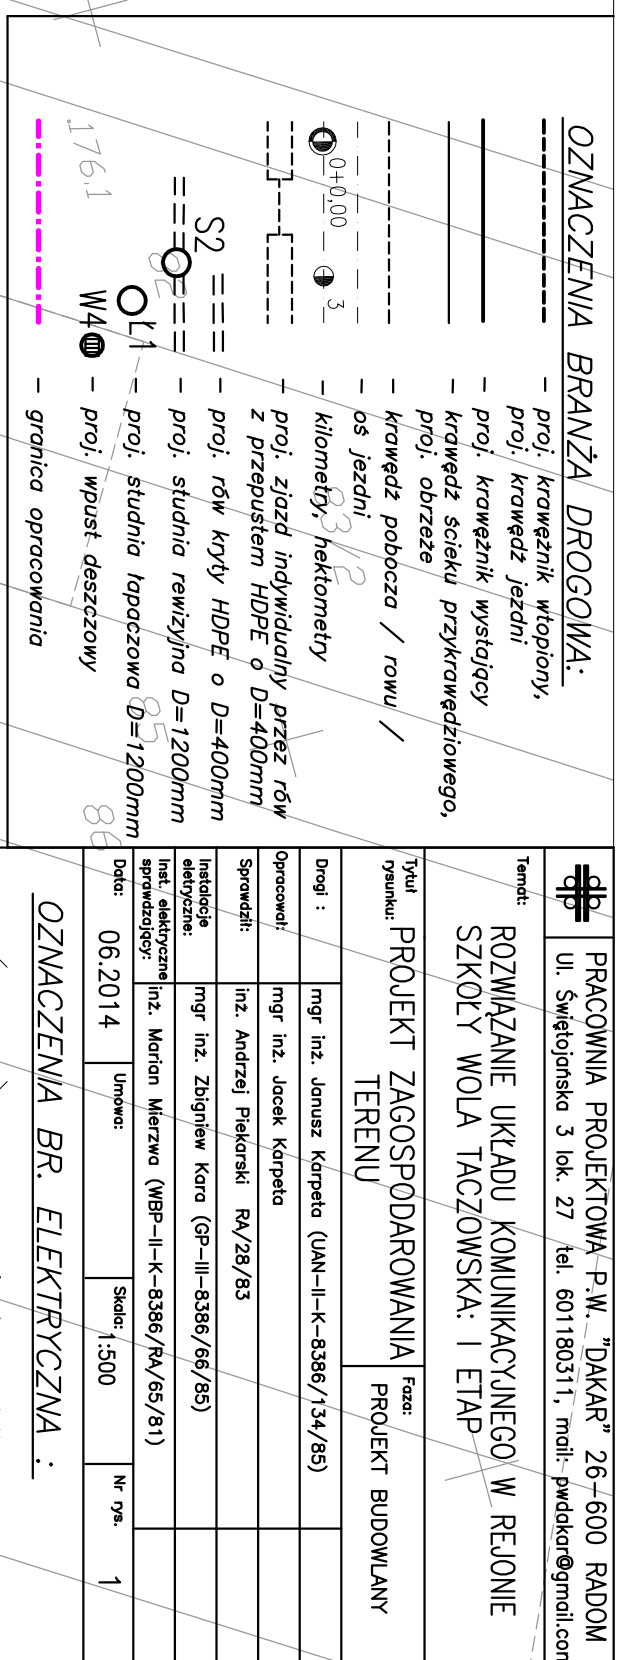 OZNACZENIA BRANŻA DROGOWA:
- proj. krawężnik wtopiony,
proj. krawędź jezdni
- proj. krawężnik wystający
- krawędź ścieku przykrawędziowego,
proj. obrzeże
- krawędź pobocza / rowu /
- oś jezdni
0+0,00
3
- kilometry, hektometry
- proj. zjazd indywidualny przez rów
z przepustem HDPE o D=400mm
- proj. rów kryty HDPE o D=400mm
S2
- proj. studnia rewizyjna D=1200mm
Ł1
- proj. studnia łapaczowa D=1200mm
W4
- proj. wpust deszczowy
- granica opracowania
176.1
82
83/2
85
86
PRACOWNIA PROJEKTOWA P.W. "DAKAR" 26-600 RADOM
Ul. Świętojańska 3 lok. 27 tel. 601180311, mail: pwdakar@gmail.com
Temat:
ROZWIĄZANIE UKŁADU KOMUNIKACYJNEGO W REJONIE
SZKOŁY WOLA TACZOWSKA: I ETAP
Tytuł
rysunku:
PROJEKT ZAGOSPODAROWANIA
TERENU
Faza:
PROJEKT BUDOWLANY
Drogi :
mgr inż. Janusz Karpeta (UAN-II-K-8386/134/85)
Opracował:
mgr inż. Jacek Karpeta
Sprawdził:
inż. Andrzej Piekarski RA/28/83
Instalacje
eletryczne:
mgr inż. Zbigniew Kara (GP-III-8386/66/85)
Inst. elektryczne
sprawdzający:
inż. Marian Mierzwa (WBP-II-K-8386/RA/65/81)
Data:
06.2014
Umowa:
Skala:
1:500
Nr rys.
1
OZNACZENIA BR. ELEKTRYCZNA :